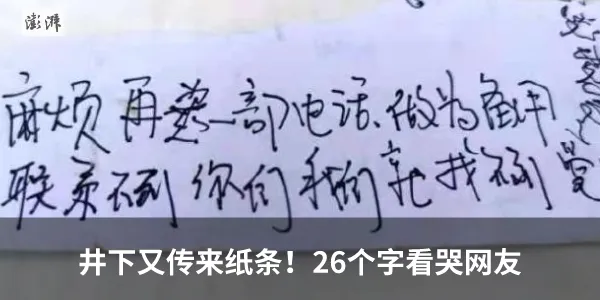 澎湃
麻烦再一部电话、做为备用
联系不到你们我们就找不到
井下又传来纸条！26个字看哭网友